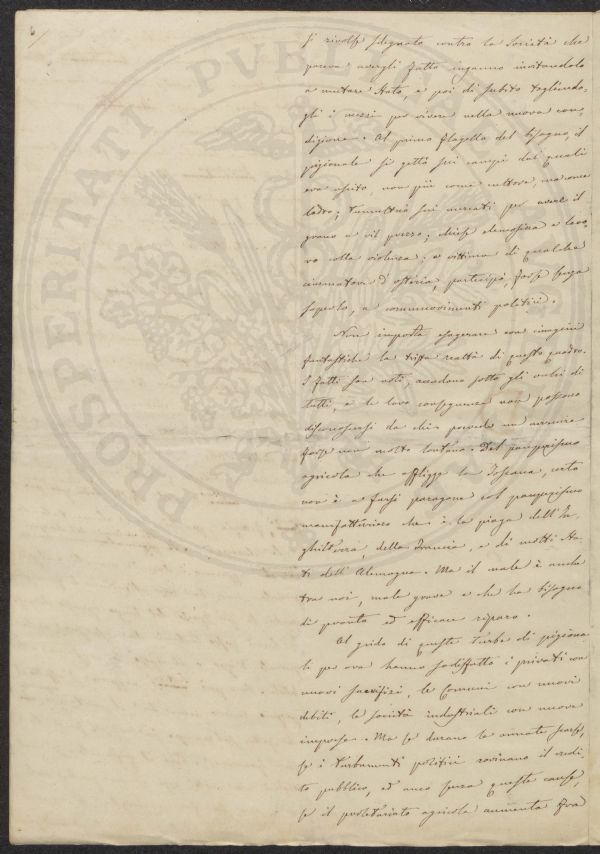 6
si rivolse sdegnato contro la Società che
pareva avergli fatto inganno invitandolo
a mutare stato, e poi di subito togliendo-
gli i mezzi per vivere nella nuova con-
dizione. Al primo flagello del bisogno, il
pigionale si gettò sui campi dai quali
era uscito non più come cultore, ma come
ladro; tumultuò sui mercati per avere il
grano a vil prezzo; chiese elemosina e lavo-
ro colla violenza; e vittima di qualche
ciurmatore d'osteria, partecipò, forse senza
saperlo, a commuovimenti politici.
Non importa esagerare con imagini
fantastiche la trista realtà di questo quadro.
I fatti son noti, accadono sotto gli occhi di
tutti, e le loro conseguenze non possono
disconoscersi da chi prevede un avvenire
forse non molto lontano. Del pauperismo
agricola che affligge la Toscana, certo
non è a farsi paragone col pauperismo
manifatturiero che è la piaga dell'In-
ghilterra, della Francia, e di molti Sta-
ti dell'Alemagna. Ma il male è anche
tra noi, male grave e che ha bisogno
di pronto ed efficace riparo.
Al grido di queste turbe di pigiona-
li per ora hanno sodisfatto i privati con
nuovi sacrifizi, le Comuni con nuovi
debiti, le società industriali con nuove
imprese. Ma se durano le annate scarse,
se i turbamenti politici rovinano il credi-
to pubblico, ed anco senza queste cause,
se il proletariato agricola aumenta fra
PIOSSERITATI PVBLICA